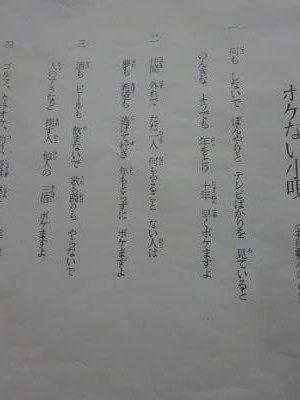 ケない小唄
一 何も しないで ぼんやりと テレビばかりを 見ていると
のんきな ようでも 年をとり 十年 早く ボケますよ
二 仲間 外れで ただ一人 何もやること ない人は
夢も 希望も 逃げて行き 年もとらずに ボケますよ
三 酒も ビールも 飲まないで 歌も踊りも やらないで
人のアラなど 捜す人 他人の 三倍 ボケますよ
四 ゴルフ、カラオケ、